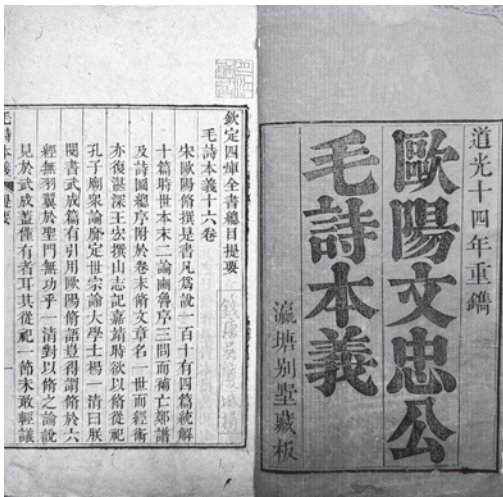 道光十四年重鐫
歐陽文忠公
毛詩本義
瀛塘別墅藏板
欽定四庫全書總目提要
毛詩本義十六卷
宋歐陽脩撰是書凡爲說一百十有四篇統解
十篇時世本末二論豳魯序三問而補亡鄭譜
及詩圖總序附於卷末脩文章名一世而經術
亦復湛深王宏撰山志記嘉靖時欲以脩從祀
孔子廟衆論靡定世宗諭大學士楊一清曰朕
閱書武成篇有引用歐陽脩語豈得謂脩於六
經無羽翼於聖門無功乎一清對以脩之論說
見於武成蓋僅有者耳其從祀一節未敢輕議
毛詩本義 提要